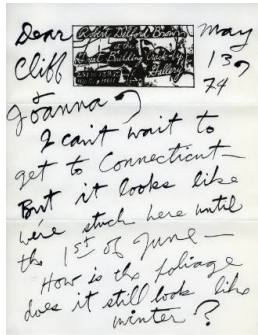 Dear
Cliff
Joanna
Robert Delford Brown
Great Building Crack-Up
Gallery
May
13
74
I can't wait to
get to Connecticut—
But it looks like
we're stuck here until
the 1st of June—
How is the foliage
does it still look like
winter?